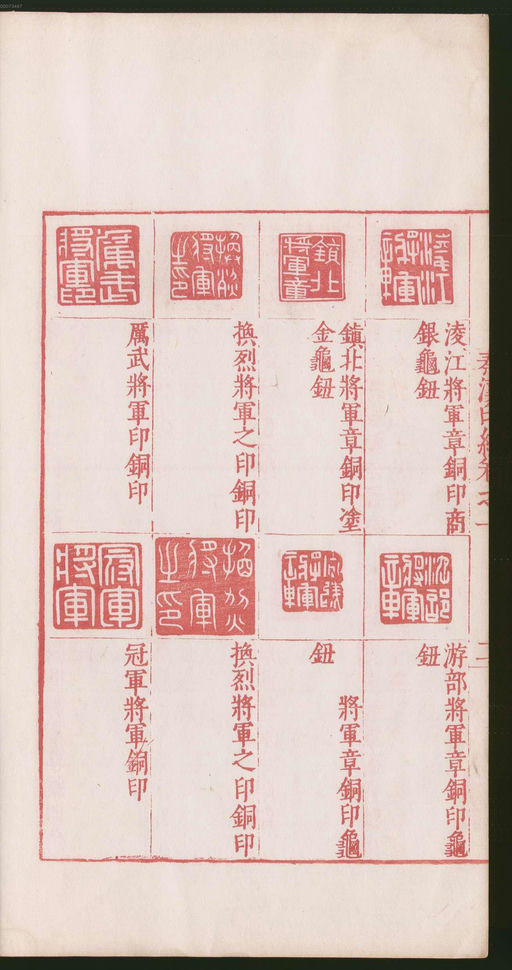 凌江將軍章銅印商
銀龜鈕
鎮北將軍章銅印塗
金龜鈕
換烈將軍之印銅印
厲武將軍印銅印
游部將軍章銅印龜
鈕
將軍章銅印龜
鈕
換烈將軍之印銅印
冠軍將軍銅印
鎮北
將軍章
厲武
將軍印
冠軍
將軍
二